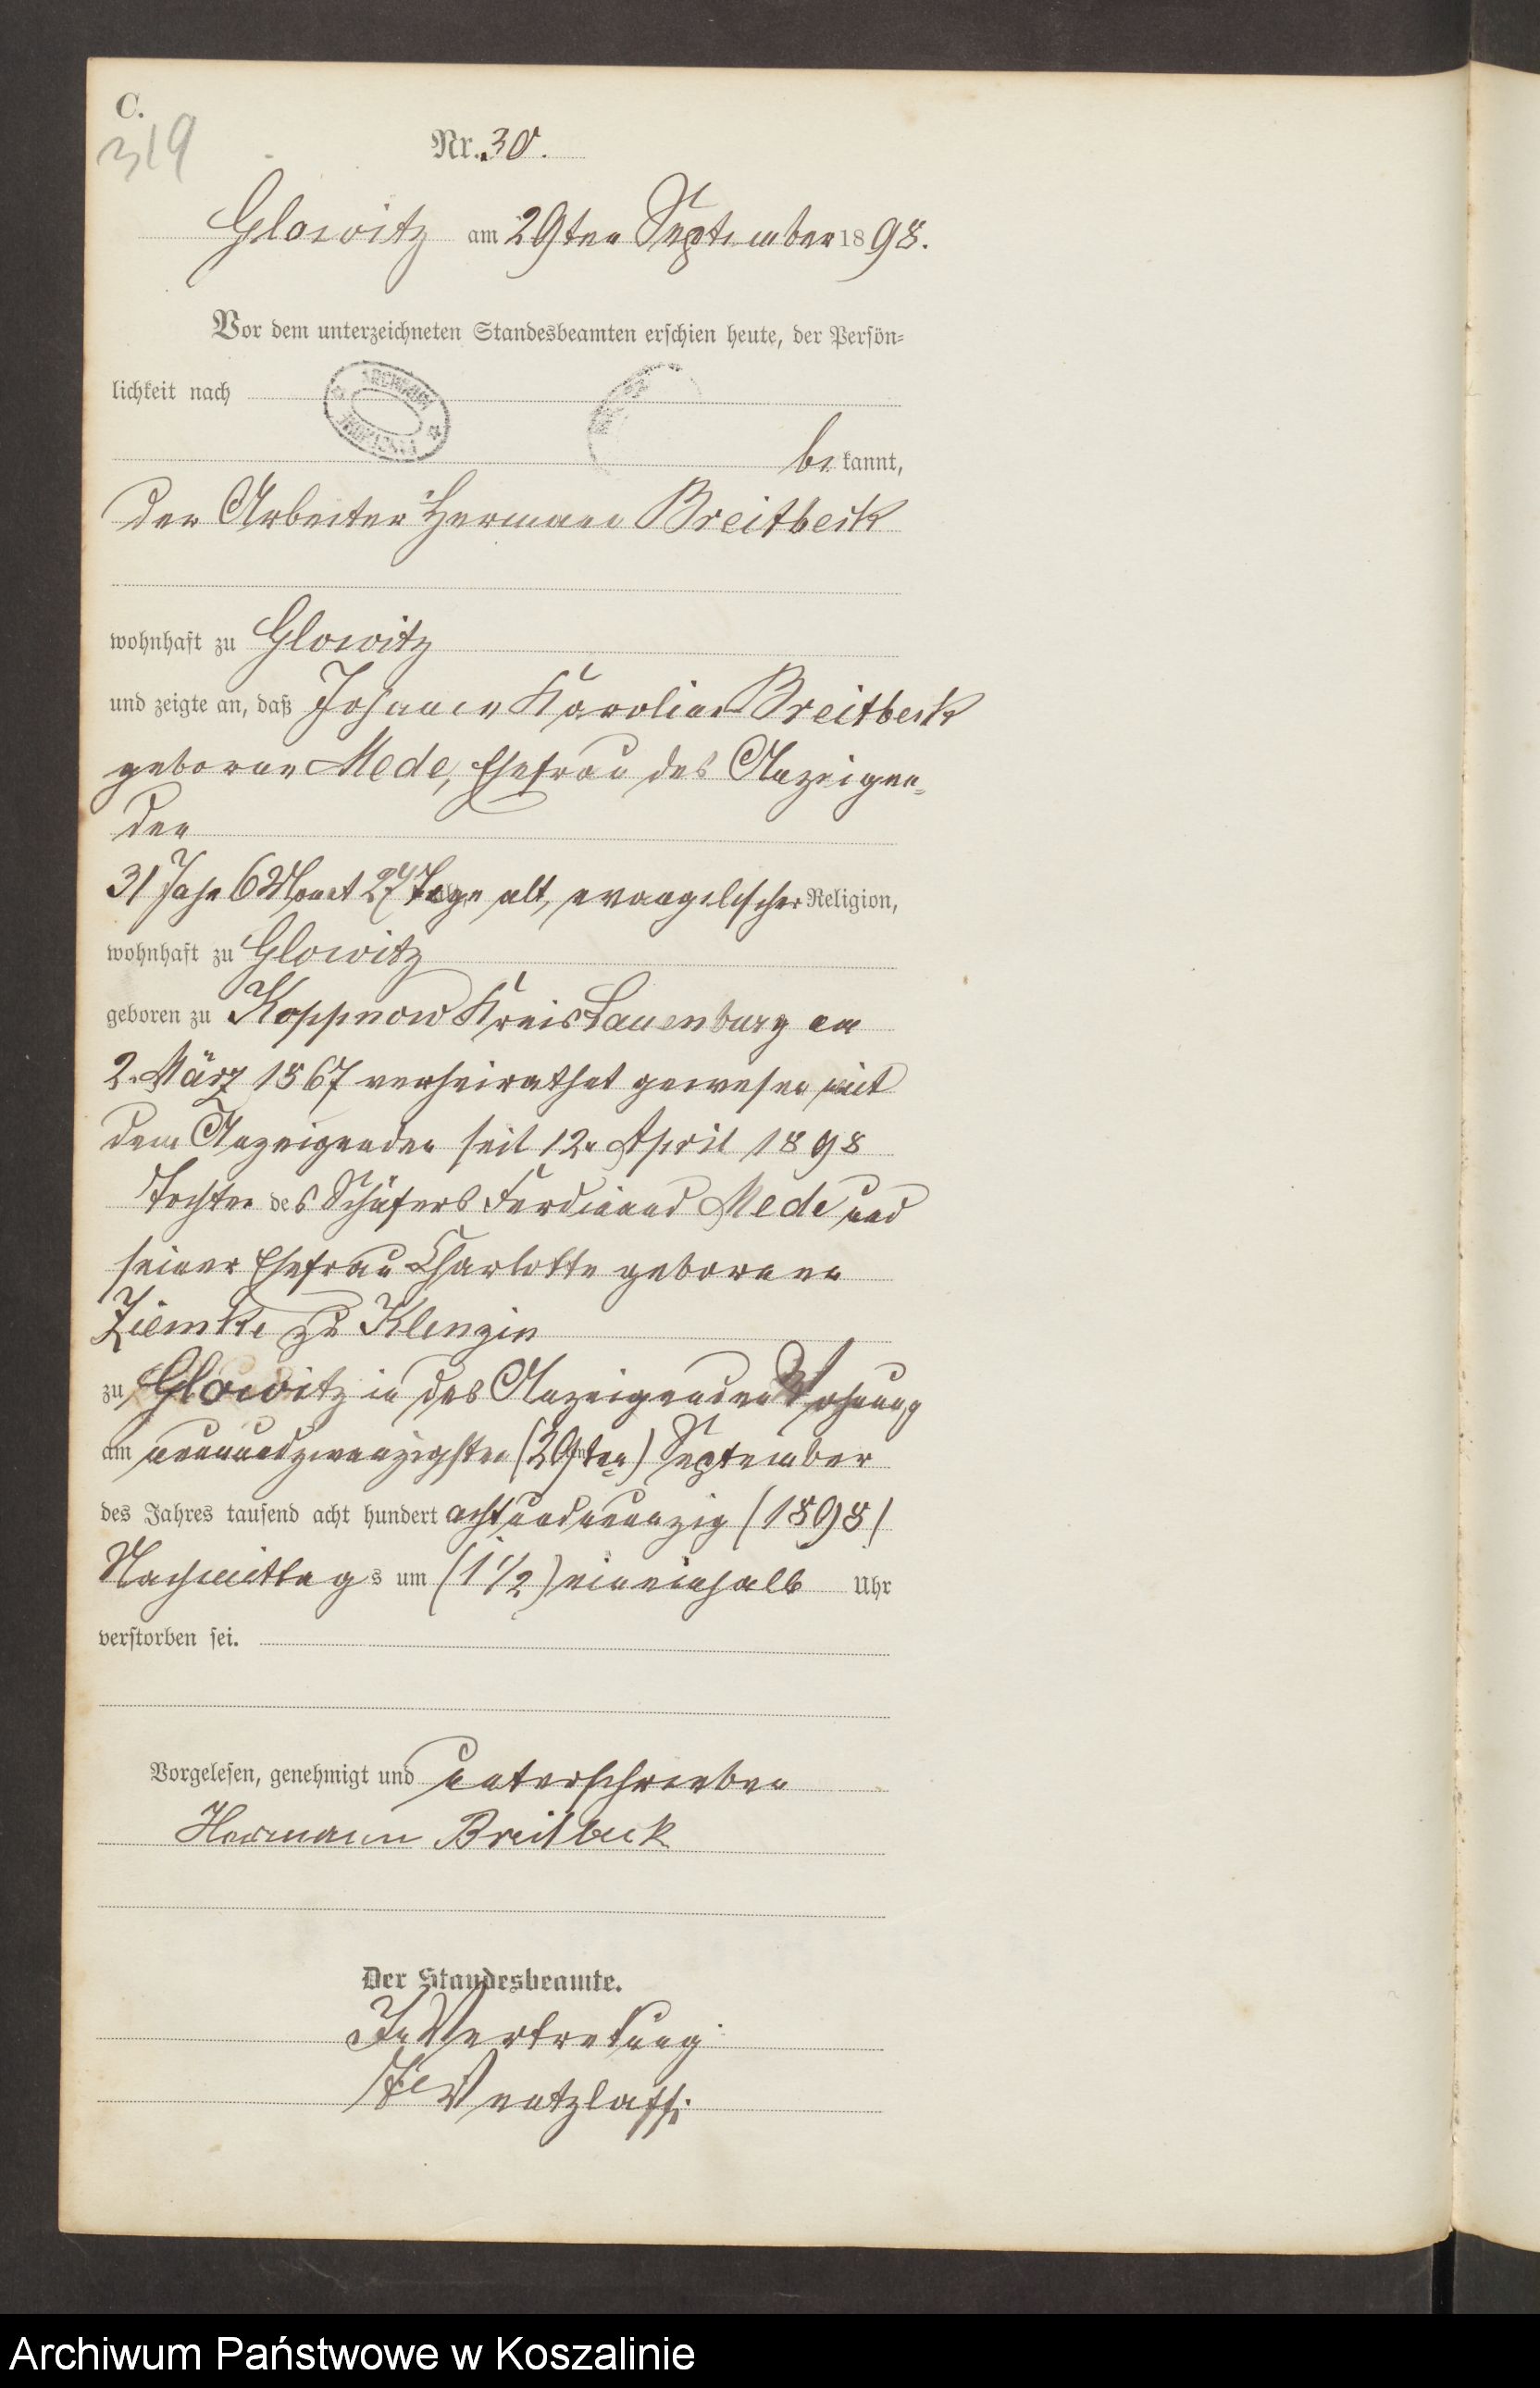 C.
319
Nr. 30.
Glowitz am 29ten September 1898.
Vor dem unterzeichneten Standesbeamten erschien heute, der Persön-
lichkeit nach
ARCHIWUM
be kannt,
der Arbeiter Hermann Breitbeck
wohnhaft zu Glowitz
und zeigte an, daß Johanne Karoline Breitbeck
geborene Mede, Ehefrau des Anzeigen-
den
31 Jahr 6 Monat 27 Tage alt, evangelischer Religion,
wohnhaft zu Glowitz
geboren zu Koppnow Kreis Lauenburg am
2. März 1867 verheirathet gewesen mit
dem Anzeigenden seit 12. April 1898
Tochter des Schäfers Ferdinand Mede und
seiner Ehefrau Charlotte geborenen
Ziemke zu Klenzin
zu Glowitz in des Anzeigenden Wohnung
am neunundzwanzigsten (29ten) September
des Jahres tausend acht hundert achtundneunzig (1898)
Nachmittags um (1 1/2) eineinhalb Uhr
verstorben sei.
Vorgelesen, genehmigt und unterschrieben
Hermann Breitbeck
Der Standesbeamte.
In Vertretung
Wentzlaff.
Archiwum Państwowe w Koszalinie